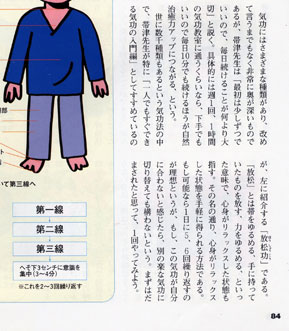 気功にはさまざまな種類があり、改め
て言うまでもなく非常に奥が深いもので
あるが、帯津先生は「最初は少しずつで
いいので、毎日続けることが何より大
切」と説く。具体的には週1回、1時間
の気功教室に通うくらいなら、下手でも
いいので毎日10分でも続けるほうが自然
治癒力アップにつながる、という。
世に数千種類もあるという気功法の中
で、帯津先生が特に「一人でもすぐでき
る気功の入門編」としてすすめているの
が、左に紹介する「放松功」である。
「放松」とは帯をゆるめる、手に持って
いたものを放す、力をゆるめる、といっ
た意味で、心身がリラックスした状態を
指す。その名の通り、心身がリラックス
した状態を手軽に得られる方法である。
もし可能なら1日に5、6回繰り返すの
が理想というが、もし、この気功が自分
に合わないと感じたら、別の楽な気功に
切り替えても構わないという。まずはだ
まされたと思って、1回やってみよう。
いて第三線へ
第一線
第二線
第三線
へそ下3センチに意識を
集中(3〜4分)
※これを2〜3回繰り返す
84